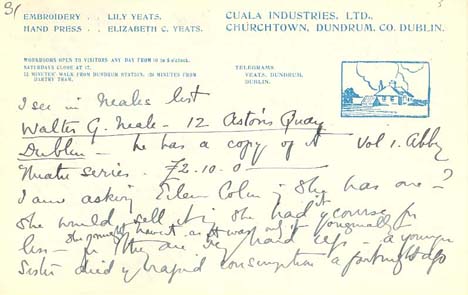 EMBROIDERY . . LILY YEATS.
HAND PRESS . . ELIZABETH C. YEATS.
CUALA INDUSTRIES, LTD.,
CHURCHTOWN, DUNDRUM, CO. DUBLIN.
WORKROOMS OPEN TO VISITORS ANY DAY FROM 10 to 5 o'clock.
SATURDAYS CLOSE AT 12.
12 MINUTES' WALK FROM DUNDRUM STATION. (20 MINUTES FROM
DARTRY TRAM.)
TELEGRAMS
YEATS, DUNDRUM,
DUBLIN.
I see in Neales list
Walter G. Neale - 12 Aston's Quay
Dublin - he has a copy of it Vol 1. Abbey
Theatre series. £2.10.0
I am asking Eileen Colum if she has one -
she would sell it if she had it of course for
less - she may haven't as it was originally
they are very hard up - a younger
Sister died of rapid consumption a fortnight ago